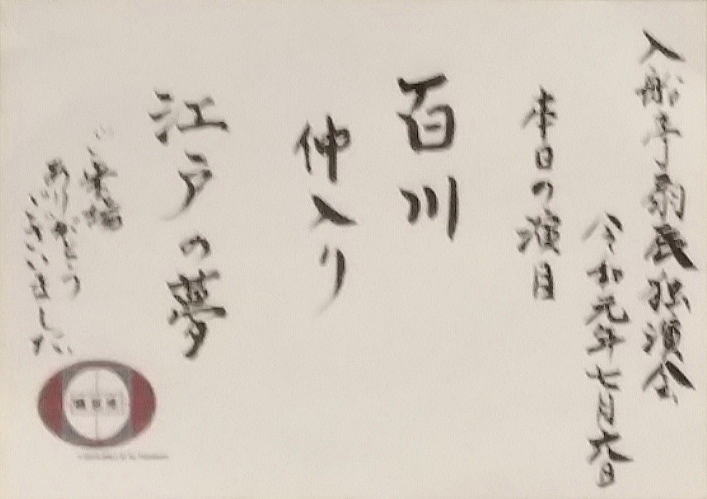 入船亭扇辰独演会
令和元年七月六日
本日の演目
百川
仲入り
江戸の夢
ご来場
ありがとう
ございました